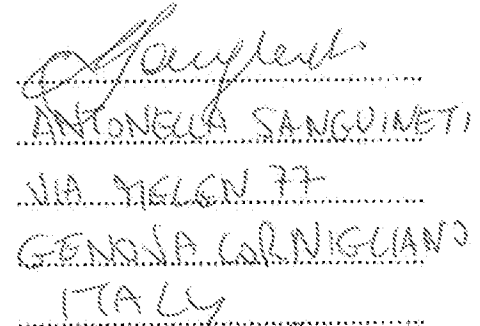 ANTONELLA SANGUINETI
VIA MELEN 77
GENOVA CORNIGLIANO
ITALY